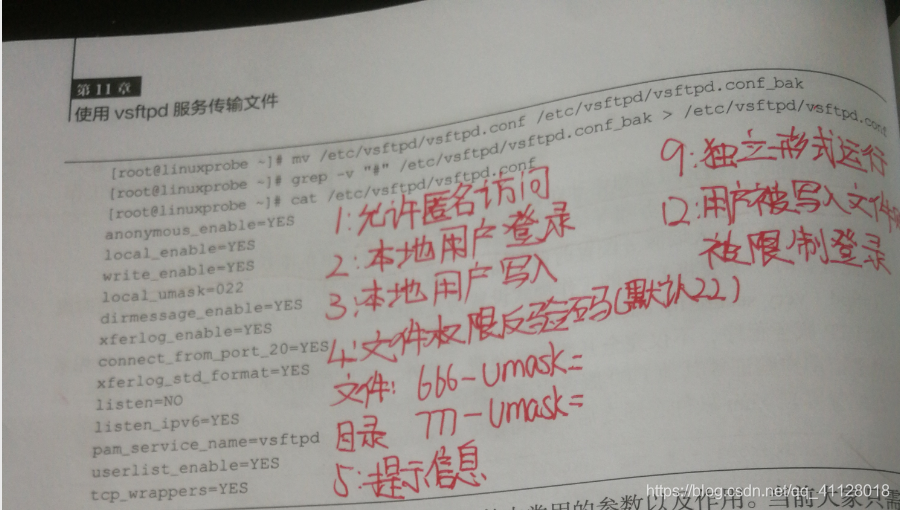 第 11 章
使用 vsftpd 服务传输文件
[root@linuxprobe ~]# mv /etc/vsftpd/vsftpd.conf /etc/vsftpd/vsftpd.conf_bak
[root@linuxprobe ~]# grep -v "#" /etc/vsftpd/vsftpd.conf_bak > /etc/vsftpd/vsftpd.conf
[root@linuxprobe ~]# cat /etc/vsftpd/vsftpd.conf
anonymous_enable=YES
local_enable=YES
write_enable=YES
local_umask=022
dirmessage_enable=YES
xferlog_enable=YES
connect_from_port_20=YES
xferlog_std_format=YES
listen=NO
listen_ipv6=YES
pam_service_name=vsftpd
userlist_enable=YES
tcp_wrappers=YES
1:允许匿名访问
2:本地用户登录
3:本地用户写入
4:文件权限反验码(默认22)
文件: 666-umask=
目录 777-umask=
5:提示信息
9:独立形式运行
12:用户被写入文件
被限制登录
常用的参数以及作用。当前大家只需
https://blog.csdn.net/qq_41128018